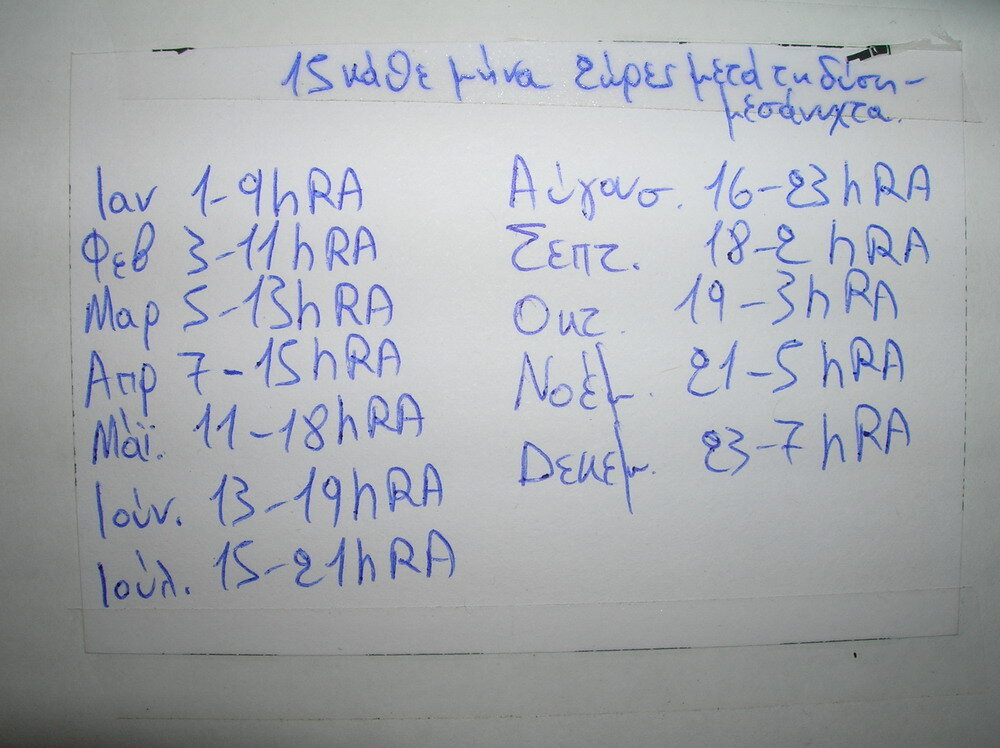 15 κάθε μήνα 2ώρες μετά τη δύση-
μεσάνυχτα.
Ιαν 1-9hRA
Φεβ 3-11hRA
Μαρ 5-13hRA
Απρ 7-15hRA
Μάϊ. 11-18hRA
Ιούν. 13-19hRA
Ιούλ. 15-21hRA
Αύγουσ. 16-23hRA
Σεπτ. 18-2 hRA
Οκτ. 19-3hRA
Νοέμ. 21-5 hRA
Δεκεμ. 23-7hRA